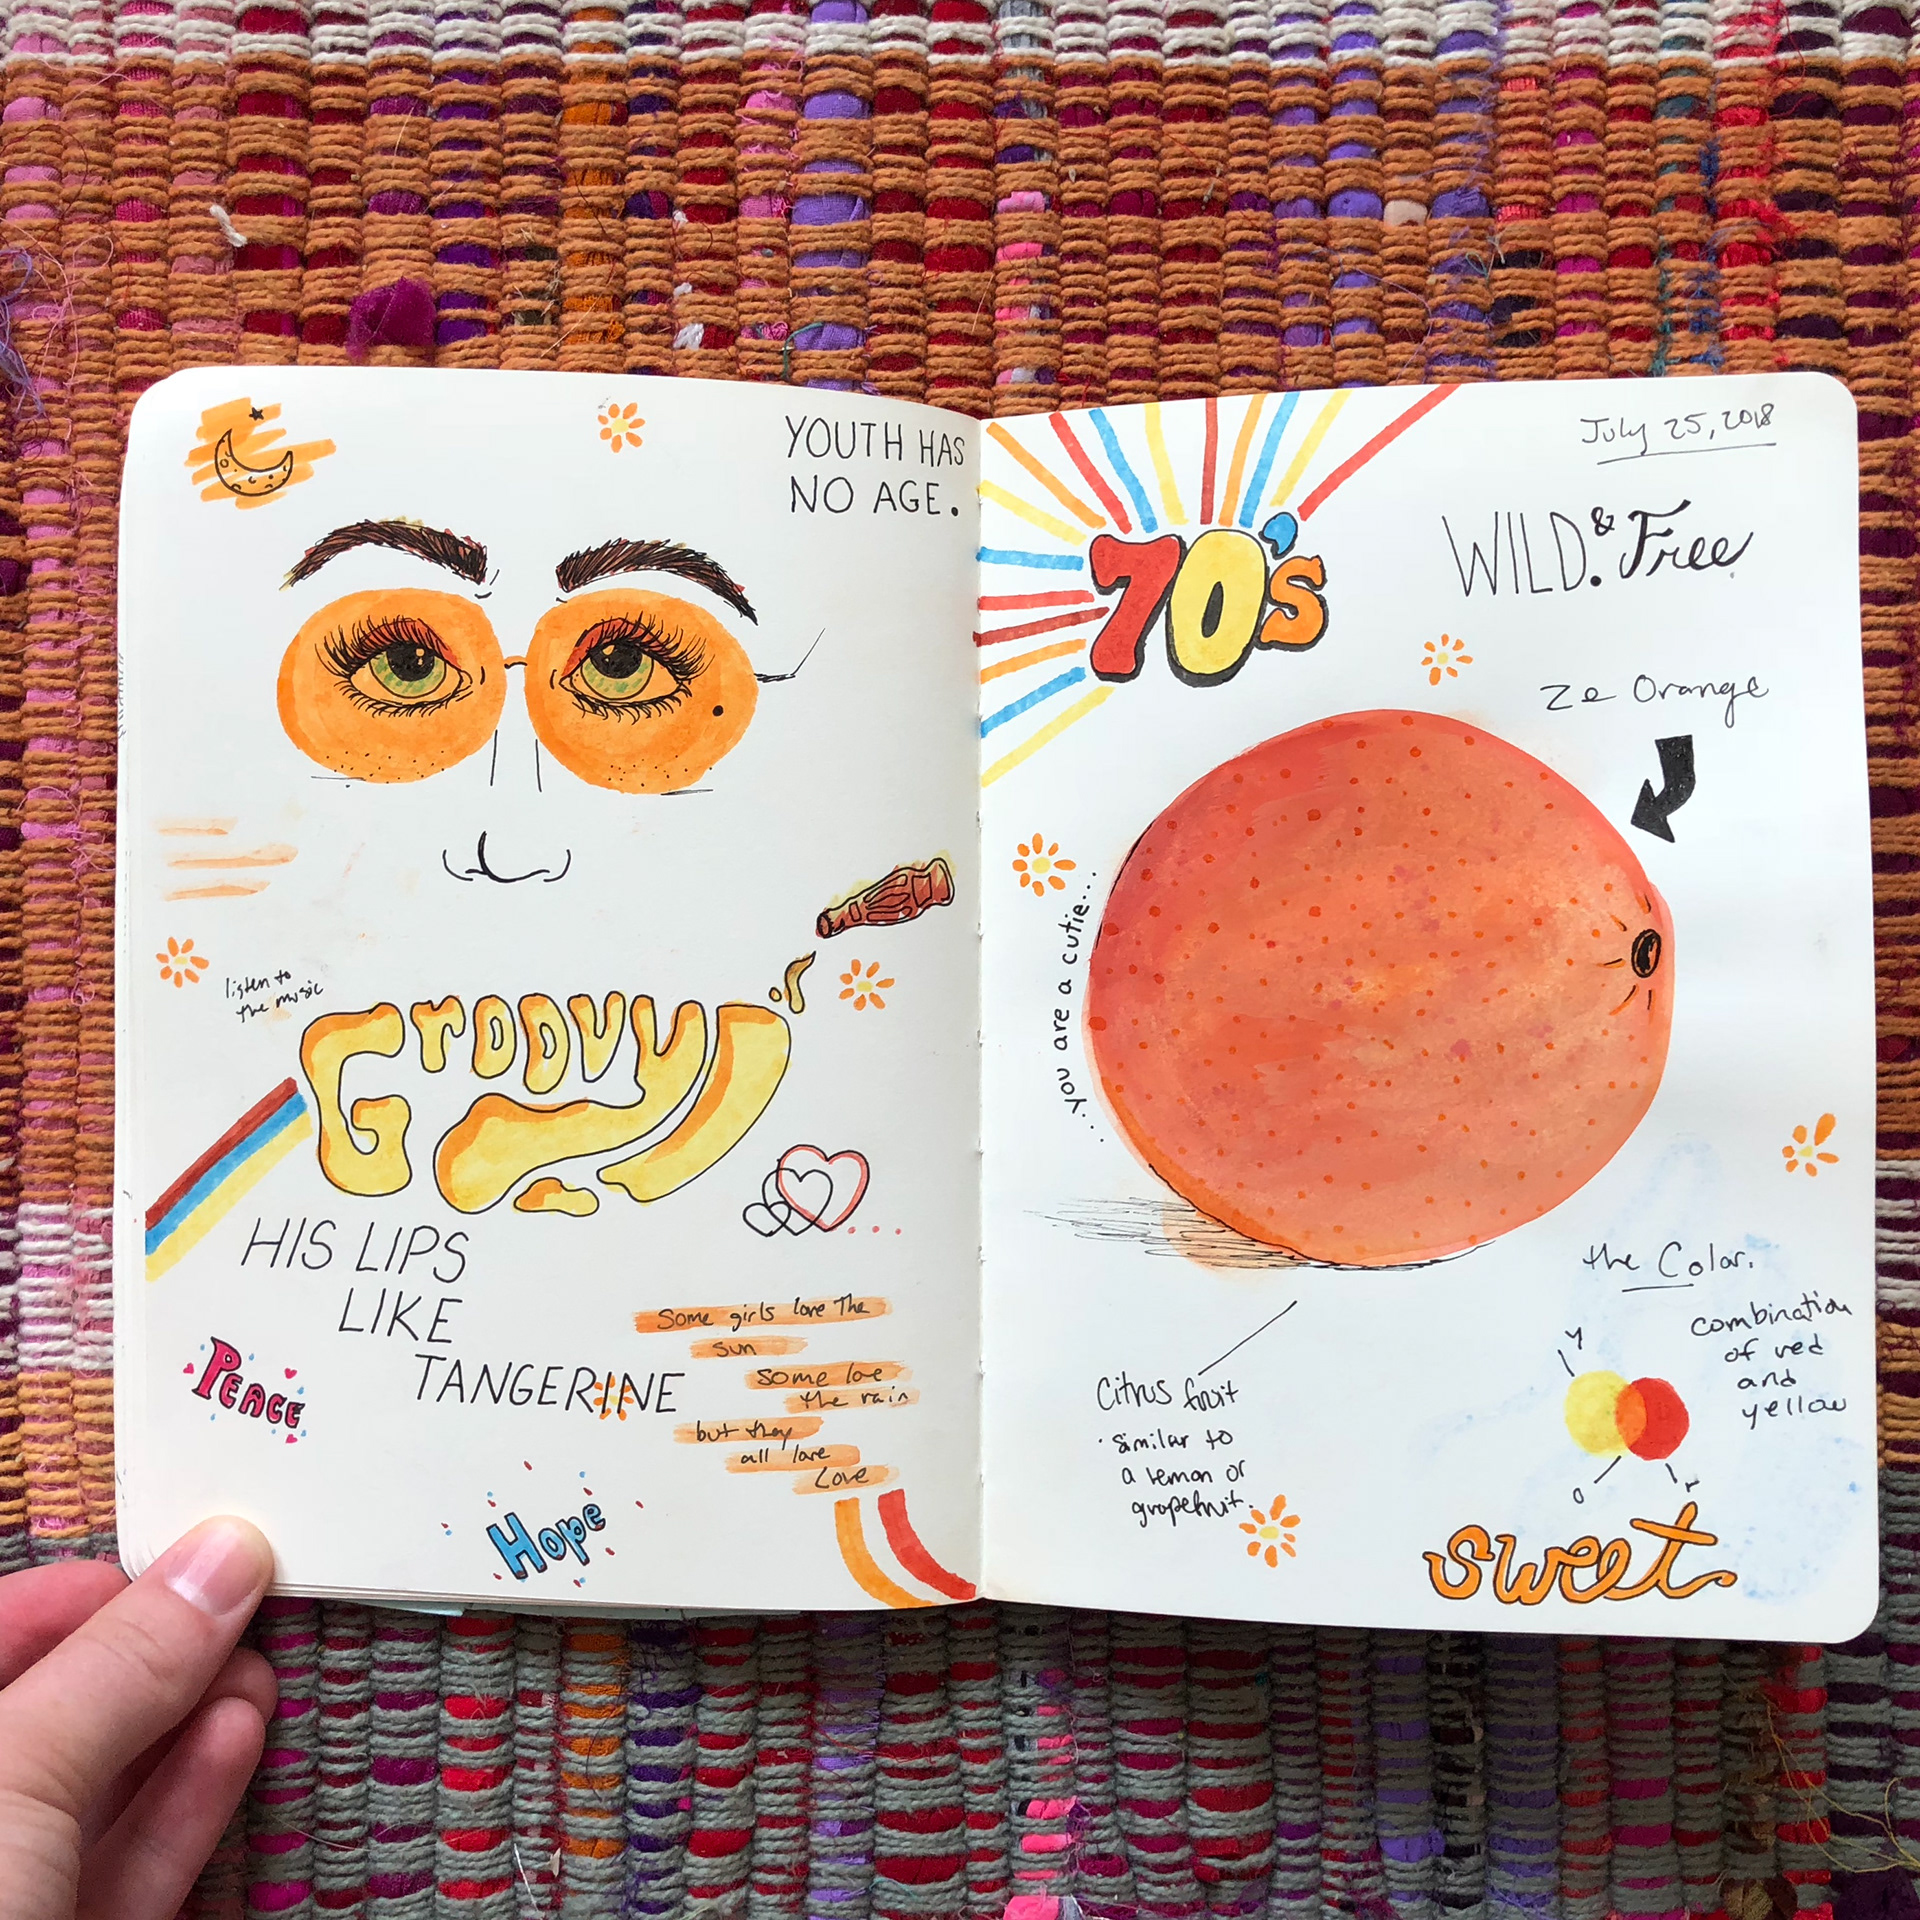 YOUTH HAS
NO AGE.
listen to
the music
GROOVY
HIS LIPS
LIKE
TANGERINE
PEACE
Some girls love the
sun
some love
the rain
but they
all love
Love
Hope
July 25, 2018
70's
WILD. & Free
Ze Orange
...you are a cutie...
the Color.
combination
of red
and
yellow
Y
O
r
Citrus fruit
· similar to
a lemon or
grapefruit.
sweet